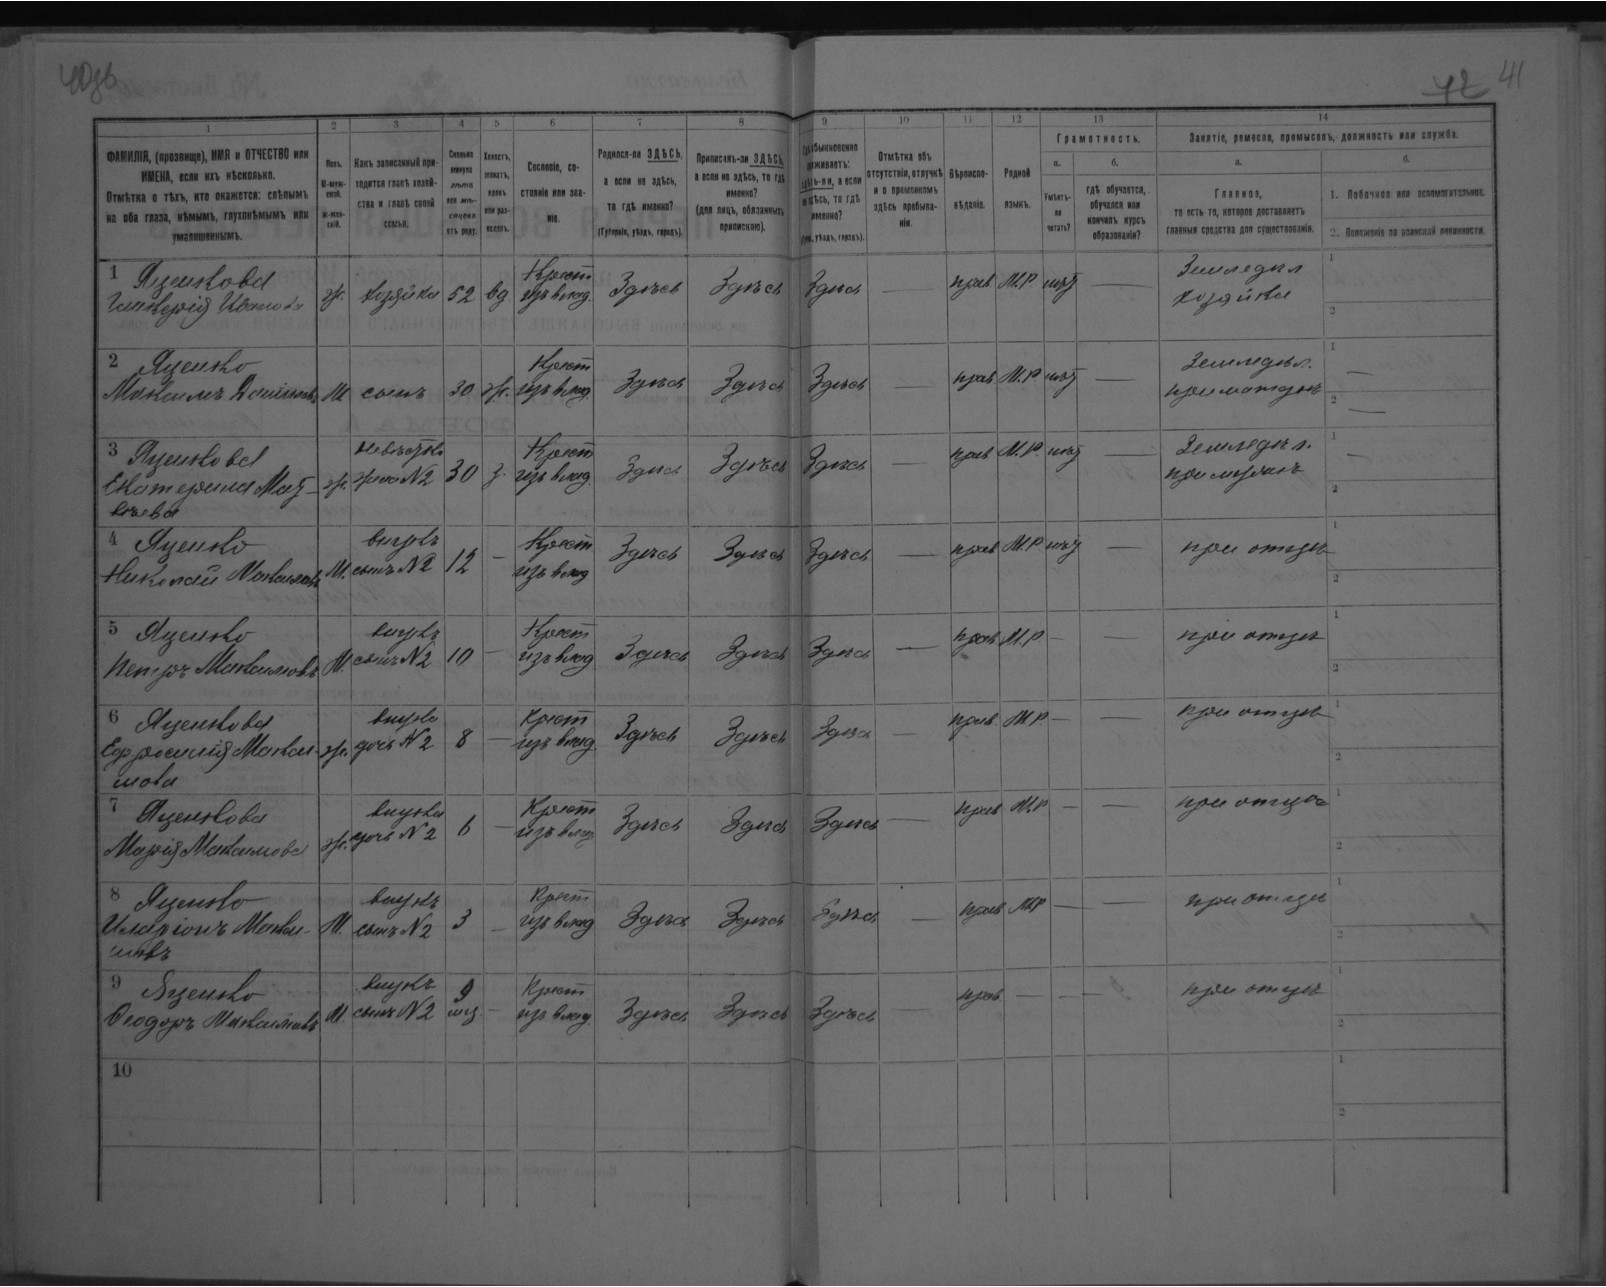 40зв
42 41
1 2 3 4 5 6 7 8 9 10 11 12 13 14
ФАМИЛІЯ, (прозвище), ИМЯ и ОТЧЕСТВО или
ИМЕНА, если ихъ нѣсколько.
Отмѣтка о тѣхъ, кто окажется: слѣпымъ
на оба глаза, нѣмымъ, глухонѣмымъ или
умалишеннымъ.
Полъ.
М-муж-
ской.
Ж-жен-
скій.
Какъ записанный при-
ходится главѣ хозяй-
ства и главѣ своей
семьи.
Сколько
минуло
лѣтъ
или мѣ-
сяцевъ
отъ роду.
Холостъ,
женатъ,
вдовъ
или раз-
веденъ.
Сословіе, со-
стояніе или зва-
ніе.
Родился-ли ЗДѢСЬ,
а если не здѣсь,
то гдѣ именно?
(Губернія, уѣздъ, городъ).
Приписанъ-ли ЗДѢСЬ,
а если не здѣсь, то гдѣ
именно?
(для лицъ, обязанныхъ
припискою).
Гдѣ обыкновенно
проживаетъ:
здѣсь-ли, а если
не здѣсь, то гдѣ
именно?
(Губ., уѣздъ, городъ).
Отмѣтка объ
отсутствіи, отлучкѣ
и о временномъ
здѣсь пребыва-
ніи.
Вѣроиспо-
вѣданіе.
Родной
языкъ.
Грамотность.
а.
Умѣетъ-
ли
читать?
б.
гдѣ обучается,
обучался или
кончилъ курсъ
образованія?
Занятіе, ремесло, промыселъ, должность или служба.
а.
Главное,
то есть то, которое доставляетъ
главныя средства для существованія.
б.
1. Побочное или вспомогательное.
2. Положеніе по воинской повинности.
1 Яценкова хозяйка Крест Земледѣл 1
Гликерія Иванова ж. 52 вд изъ влад. Здѣсь Здѣсь Здѣсь — прав М.Р нѣт — хозяйка 2
2 Яценко Крест Земледѣл. 1 —
Максимъ М сынъ 30 ж. изъ влад. Здѣсь Здѣсь Здѣсь — прав М.Р нѣт — при матери 2 —
3 Яценкова невѣстка Крест Земледѣл. 1 —
Екатерина Мат- ж. жена №2 30 з. изъ влад. Здѣсь Здѣсь Здѣсь — прав М.Р. нѣт — при мужѣ 2
вѣева
4 Яценко внукъ Крест 1
Николай Максимовъ М. сынъ №2 12 — изъ влад Здѣсь Здѣсь Здѣсь — прав М.Р нѣт — при отцѣ 2
5 Яценко внукъ Крест 1
Петръ Максимовъ М. сынъ №2 10 — изъ влад Здѣсь Здѣсь Здѣсь — прав М.Р — — при отцѣ 2
6 Яценкова внука Крест 1
Ефросинія Макси- ж. дочь №2 8 — изъ влад. Здѣсь Здѣсь Здѣсь — прав. М.Р — — при отцѣ 2
мова
7 Яценкова внука Крест 1
Марія Максимова ж. дочь №2 6 — изъ влад Здѣсь Здѣсь Здѣсь — прав М.Р — — при отцѣ 2
8 Яценко внукъ Крест 1
Иларіонъ Макси- М. сынъ №2 3 — изъ влад Здѣсь Здѣсь Здѣсь — прав М.Р — — при отцѣ 2
мовъ
9 Яценко внукъ 9 Крест 1
Ѳеодоръ Максимовъ М. сынъ №2 мѣц. — изъ влад. Здѣсь Здѣсь Здѣсь — прав — — — при отцѣ 2
10 1
2